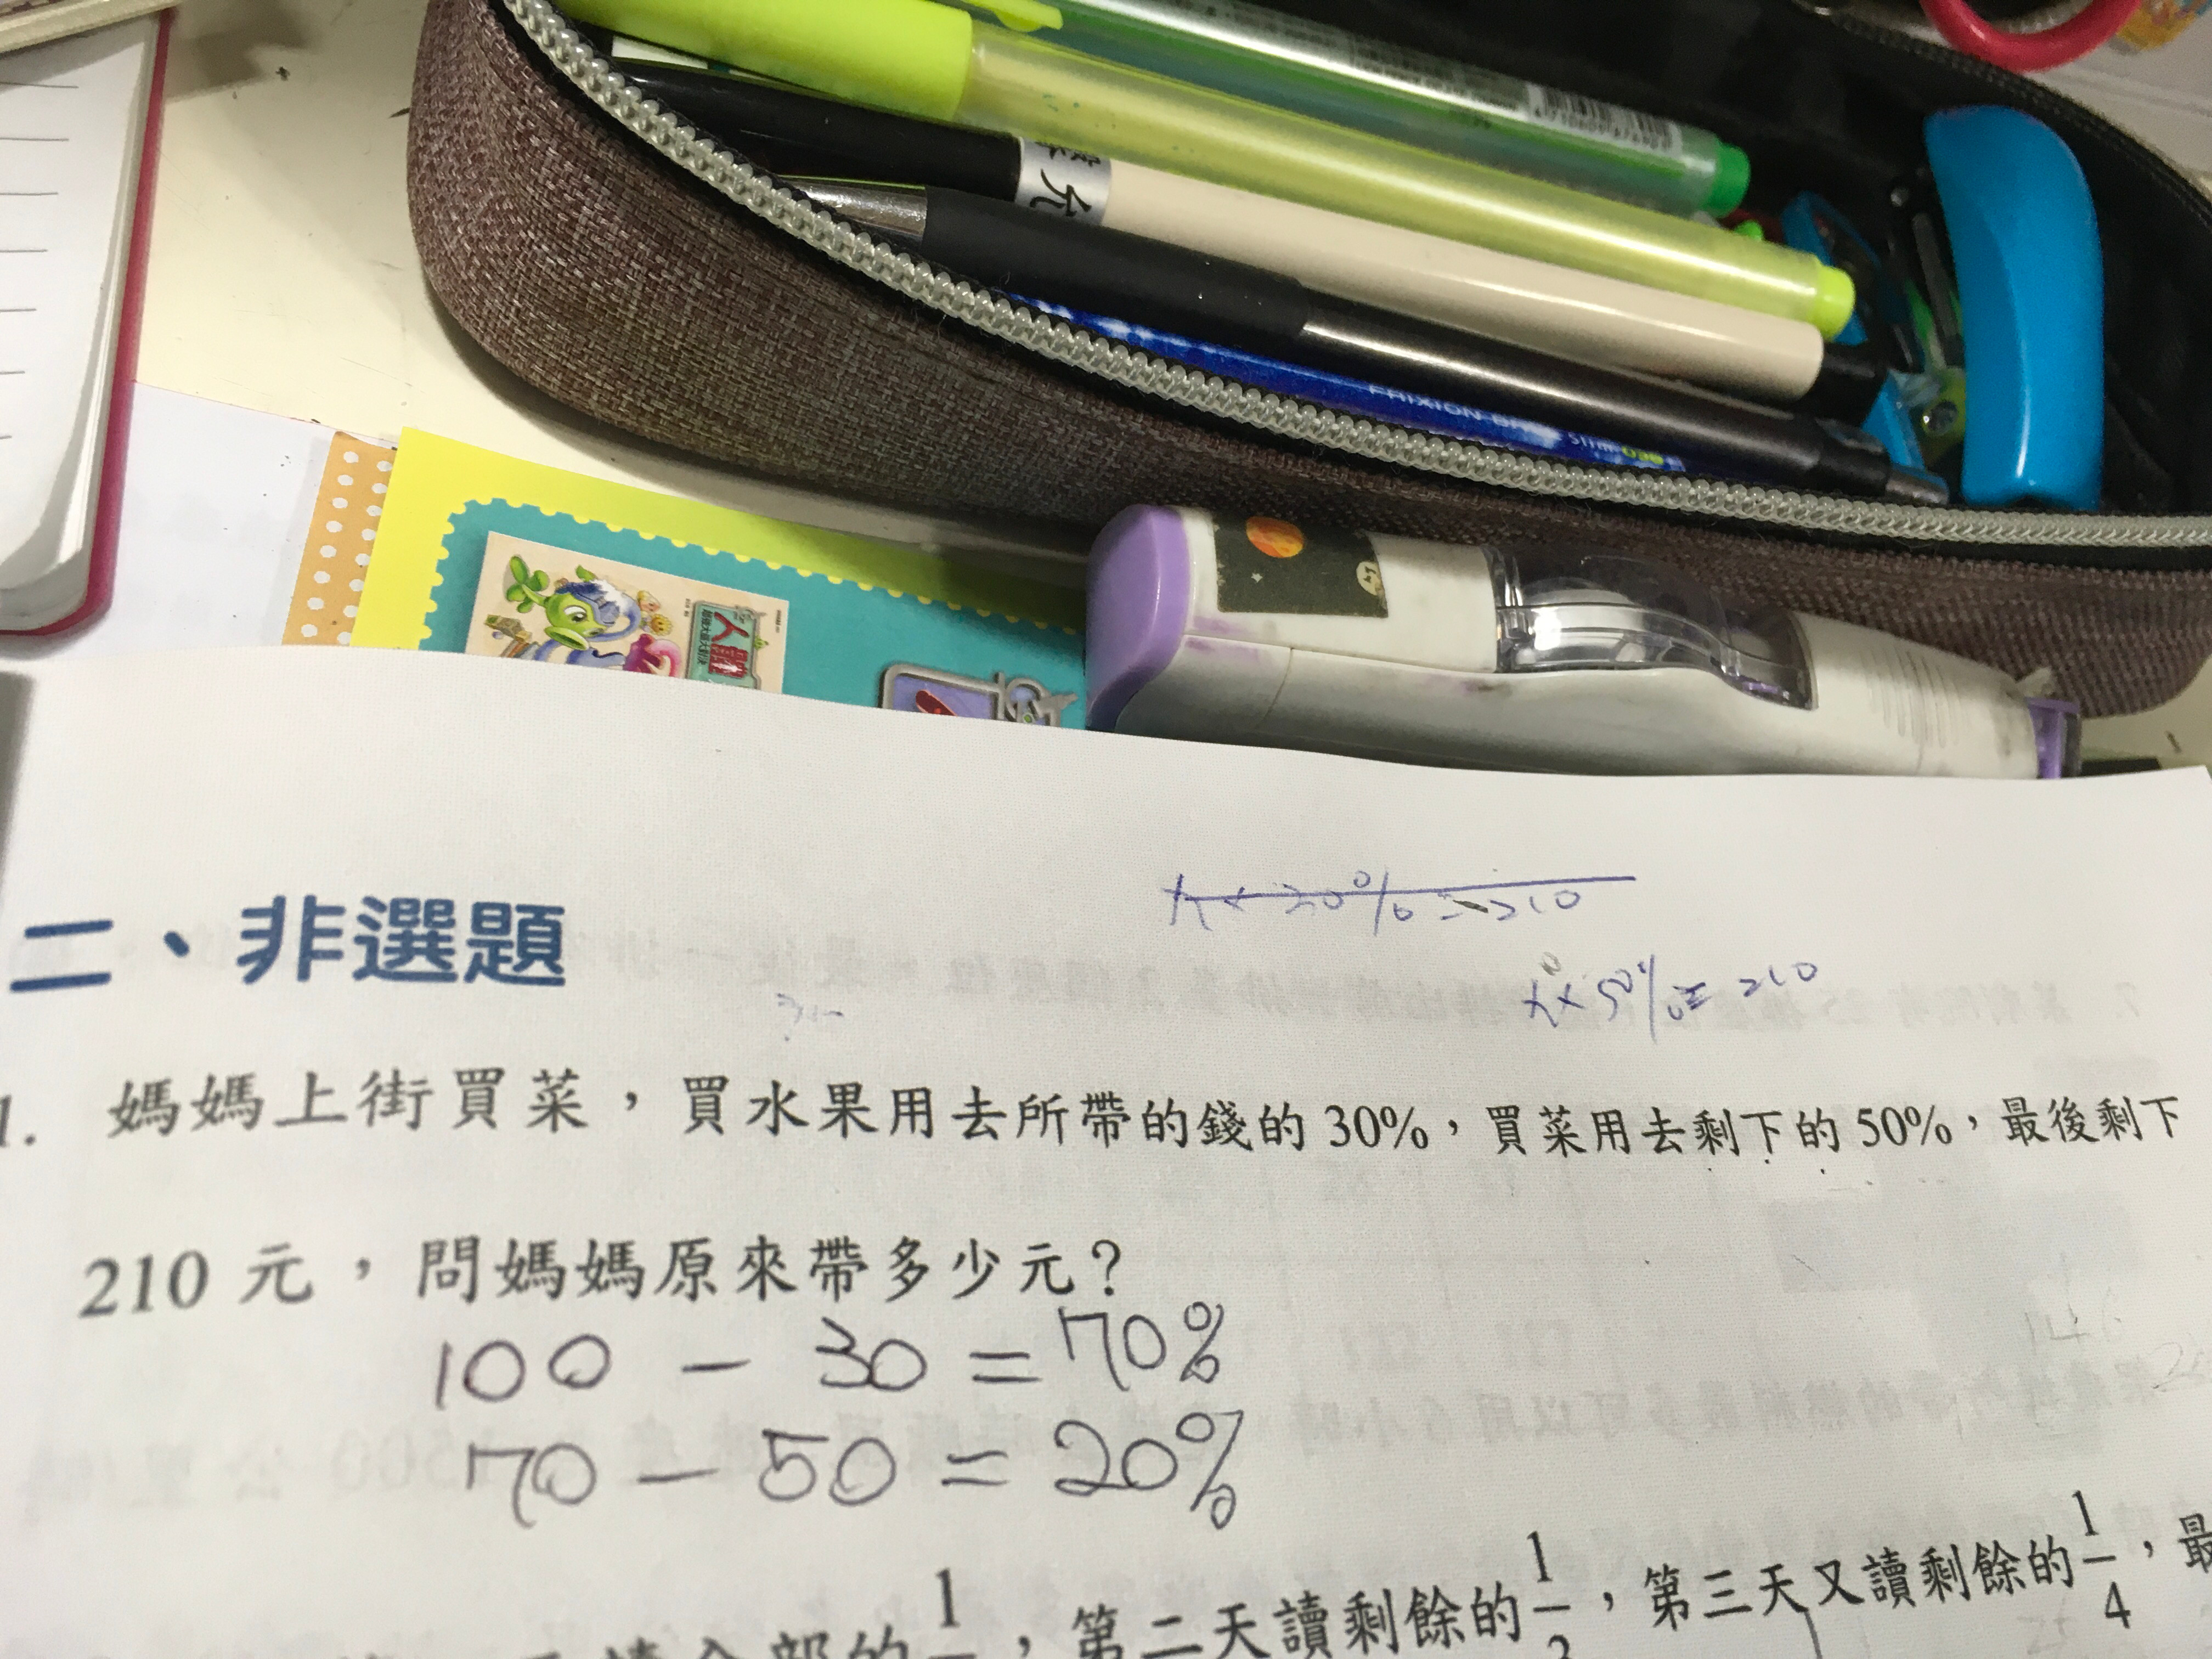 FRIXION
slim 038
x × 20% = 210
x × 50% = 210
二、非選題
1. 媽媽上街買菜，買水果用去所帶的錢的 30%，買菜用去剩下的 50%，最後剩下
210 元，問媽媽原來帶多少元？
100 - 30 = 70%
70 - 50 = 20%
，第二天讀剩餘的 1/3，第三天又讀剩餘的 1/4，最